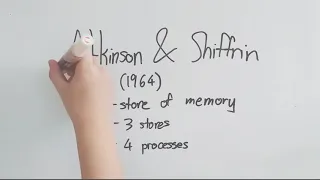 Atkinson & Shiffrin
(1964)
- store of memory
- 3 stores
- 4 processes